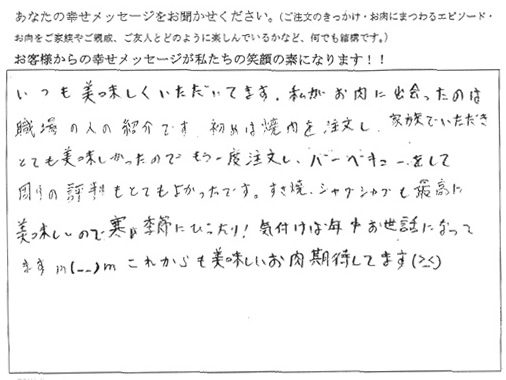 あなたの幸せメッセージをお聞かせください。(ご注文のきっかけ・お肉にまつわるエピソード・
お肉をご家族やご親戚、ご友人とどのように楽しんでいるかなど、何でも結構です。)
お客様からの幸せメッセージが私たちの笑顔の素になります！！
いつも美味しくいただいてます。私がお肉に出会ったのは
職場の人の紹介です。初めは焼肉を注文し、家族でいただき
とても美味しかったのでもう一度注文し、バーベキューをして
周りの評判もとてもよかったです。すき焼、シャブシャブも最高に
美味しいので寒い季節にぴったり！気付けば年中お世話になって
ます m(__)m これからも美味しいお肉期待してます(>_<)